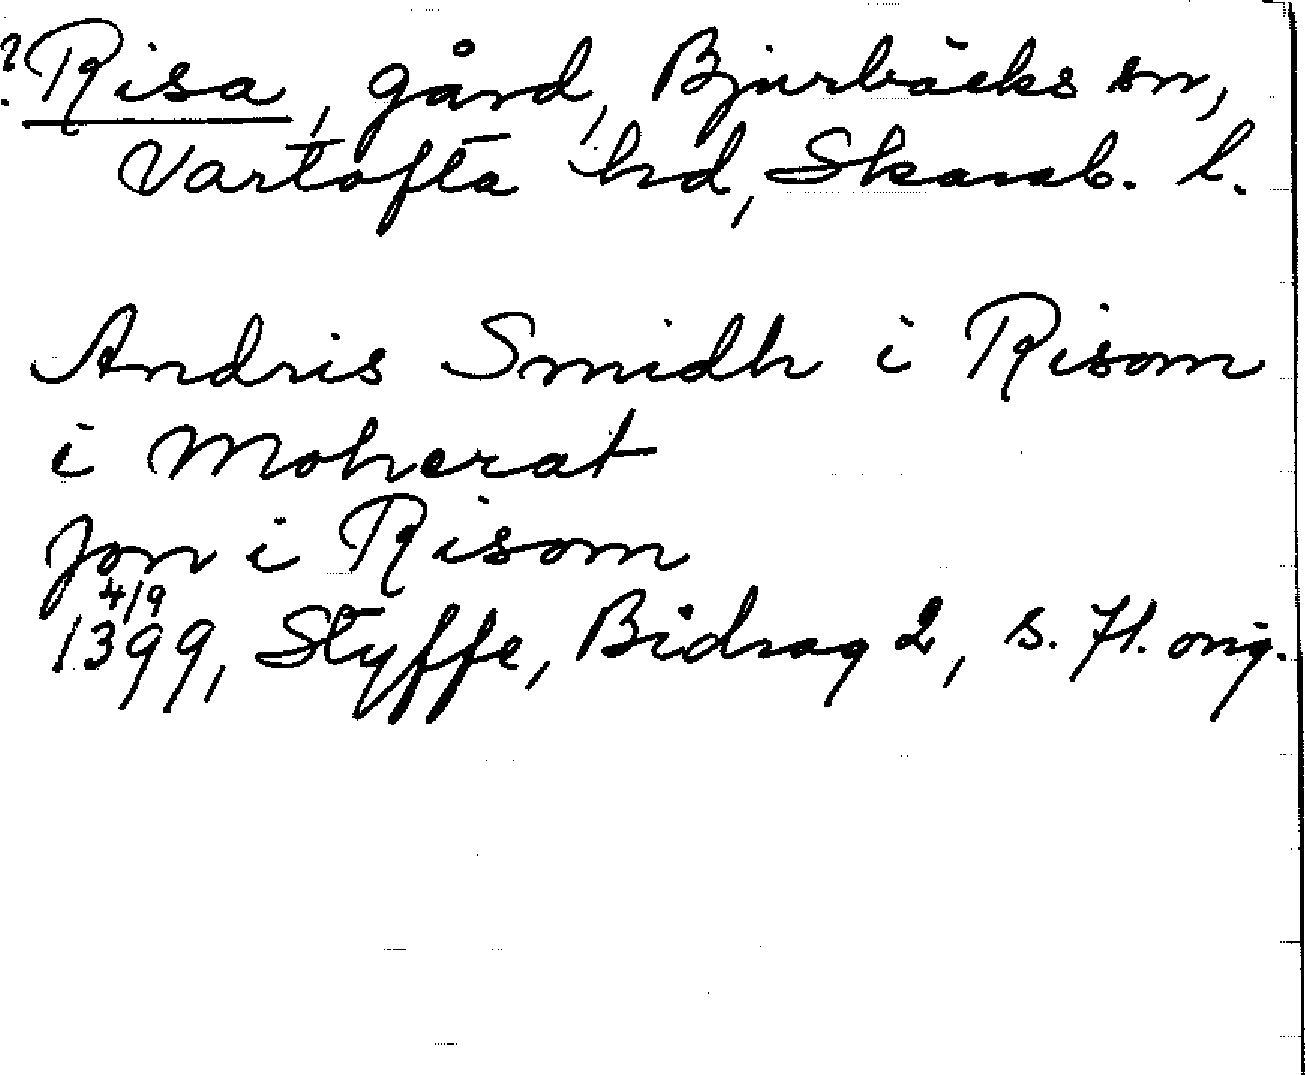 ? Risa, gård, Bjurbäcks sn,
Vartofta hd, Skarab. l.
Andris Smidh i Risom
i Moherat
Jon i Risom
4/9
1399, Styffe, Bidrag 2, s. 71. orig.